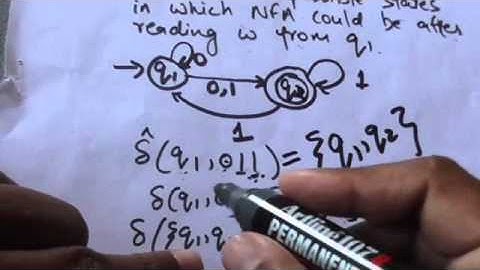 states
in which NFA could be after
reading w from q₁.
0
q₁
0,1
q₂
1
1
δ̂(q₁,011)={q₁,q₂}
δ(q₁,
δ({q₁,q
PERMANENT